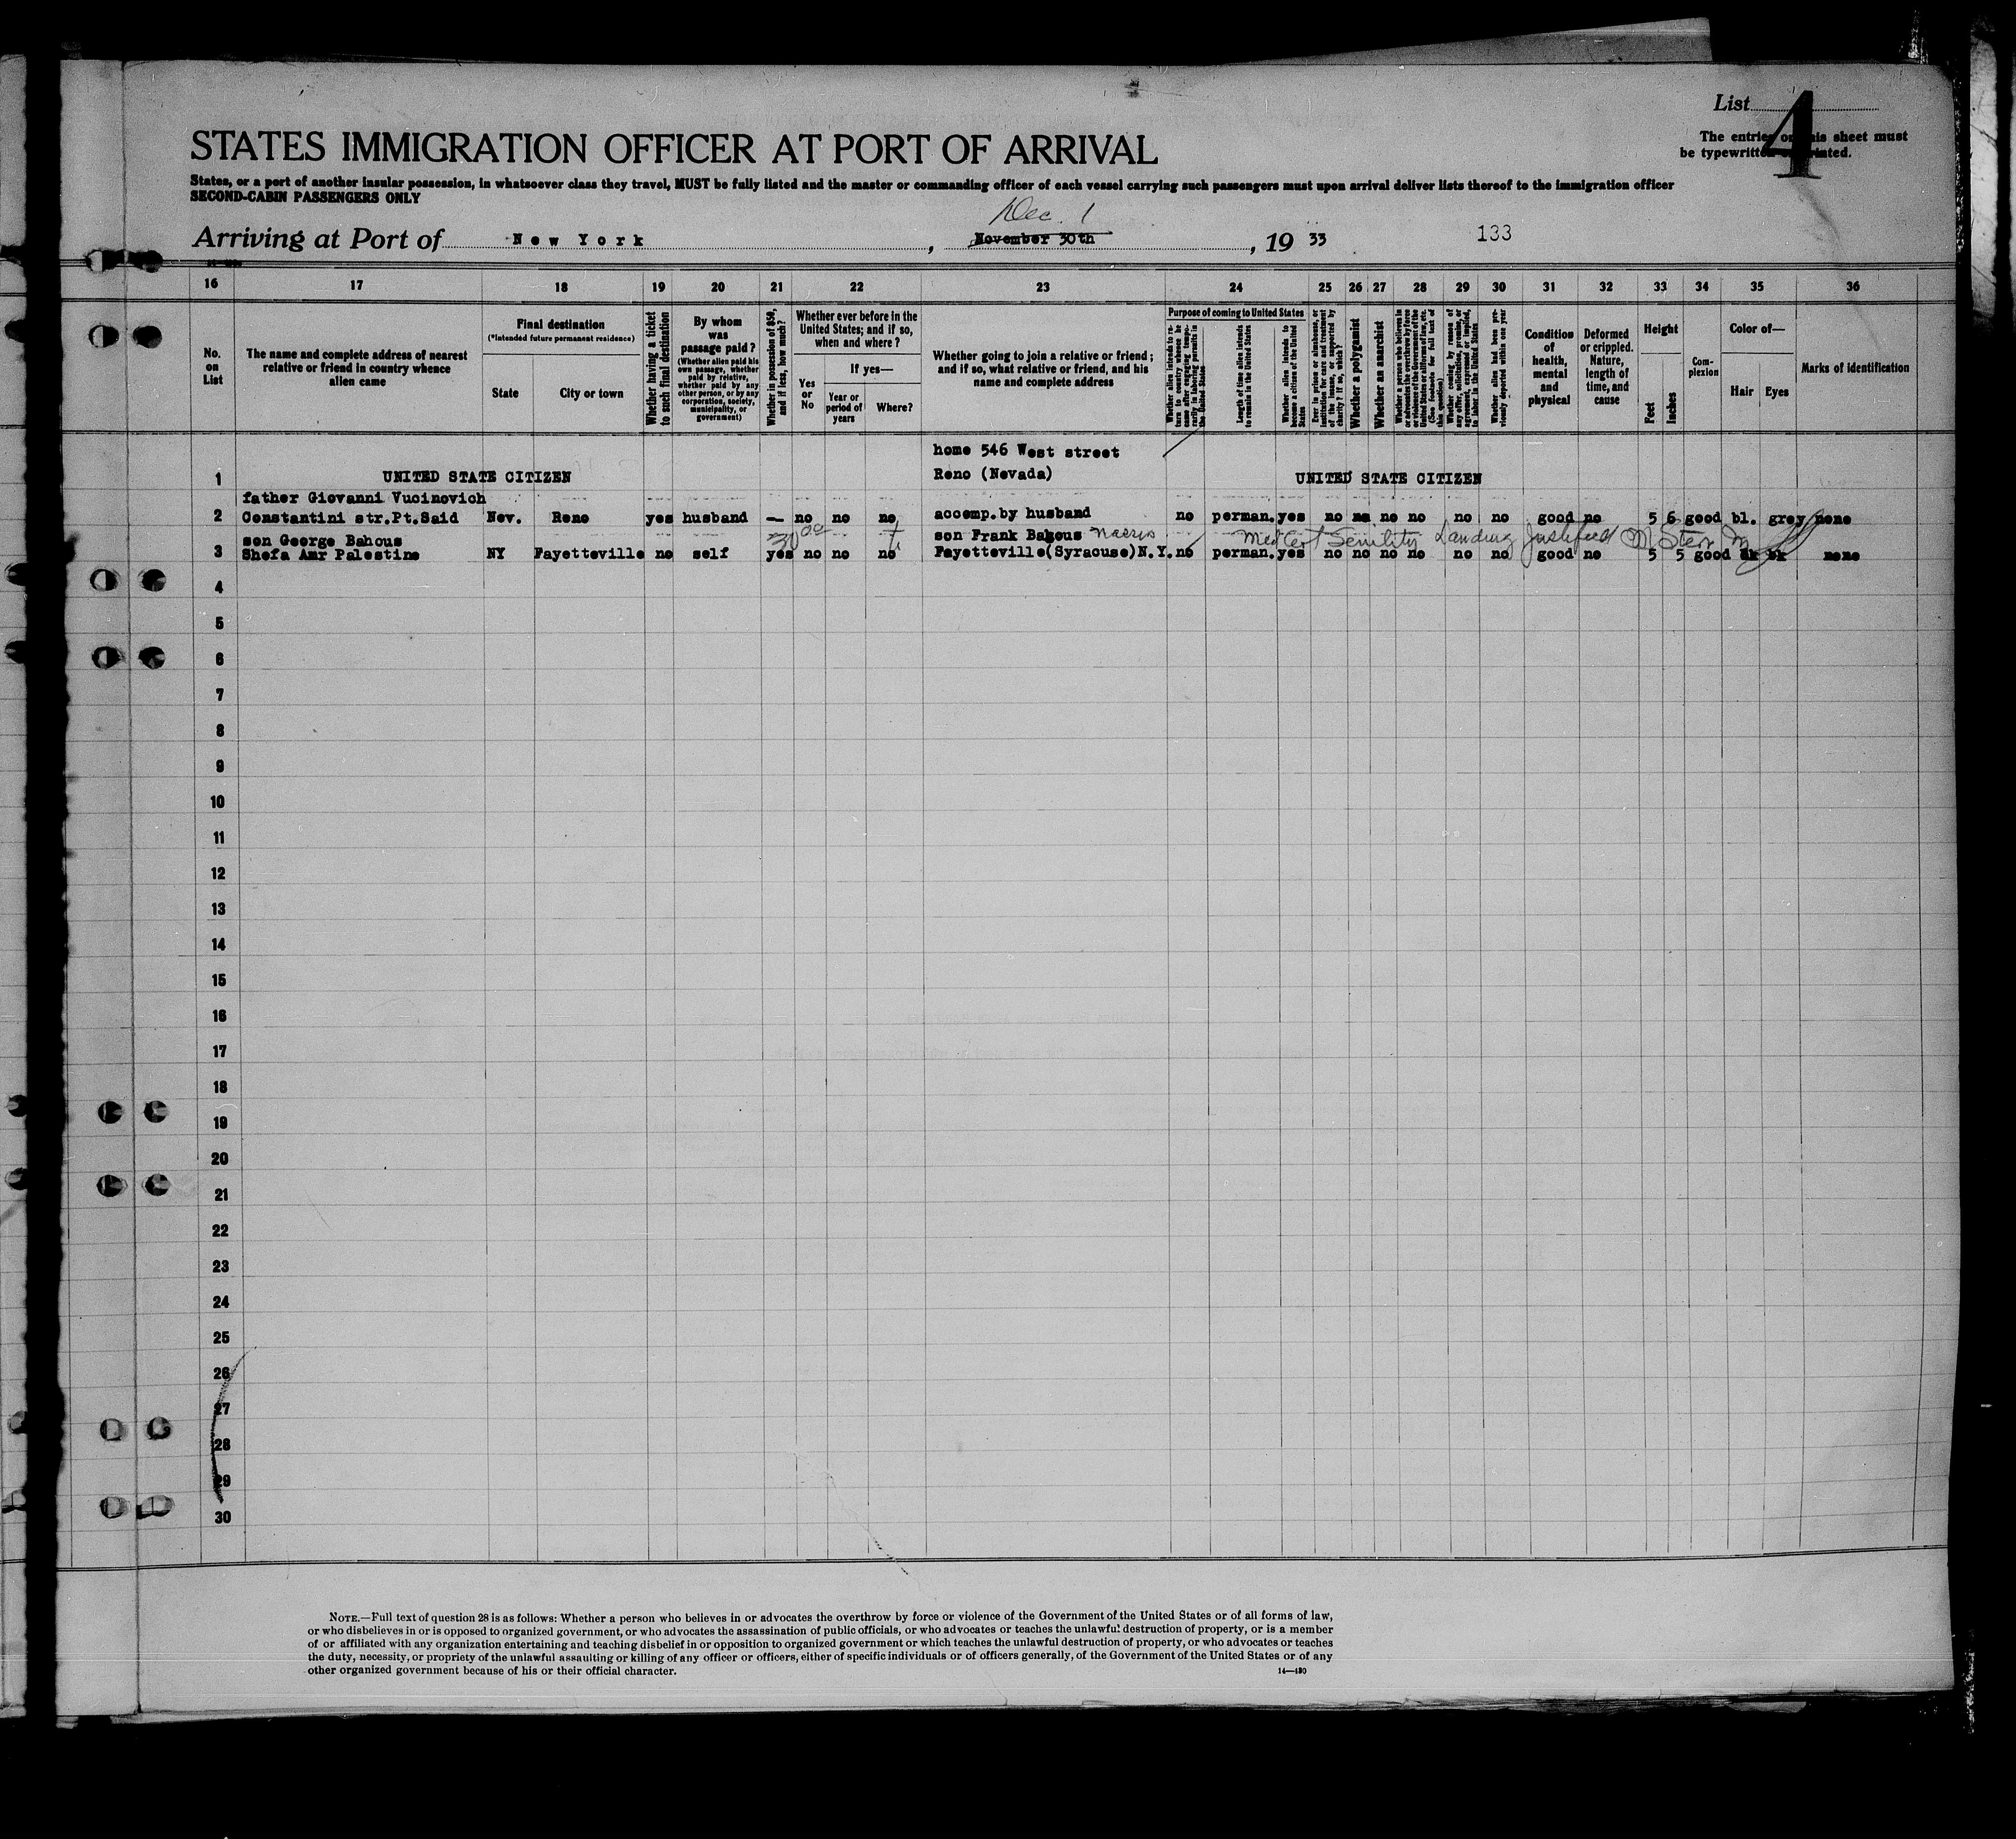 List 4
The entries on this sheet must
be typewritten or printed.
STATES IMMIGRATION OFFICER AT PORT OF ARRIVAL
States, or a port of another insular possession, in whatsoever class they travel, MUST be fully listed and the master or commanding officer of each vessel carrying such passengers must upon arrival deliver lists thereof to the immigration officer
SECOND-CABIN PASSENGERS ONLY
Dec. 1
Arriving at Port of New York, November 30th, 19 33 133
16 17 18 19 20 21 22 23 24 25 26 27 28 29 30 31 32 33 34 35 36
No. on List
The name and complete address of nearest relative or friend in country whence alien came
Final destination
(*Intended future permanent residence)
State
City or town
Whether having a ticket to such final destination
By whom was passage paid?
(Whether alien paid his own passage, whether paid by relative, whether paid by any other person, or by any corporation, society, municipality, or government)
Whether in possession of $50, and if less, how much?
Whether ever before in the United States; and if so, when and where?
Yes or No
If yes—
Year or period of years
Where?
Whether going to join a relative or friend; and if so, what relative or friend, and his name and complete address
Purpose of coming to United States
Whether alien intends to return to country whence he came after engaging temporarily in laboring pursuits in the United States
Length of time alien intends to remain in the United States
Whether alien intends to become a citizen of the United States
Ever in prison or almshouse, or institution for care and treatment of the insane, or supported by charity? If so, which?
Whether a polygamist
Whether an anarchist
Whether a person who believes in or advocates the overthrow by force or violence of the Government of the United States or all forms of law, etc. (See footnote for full text of this question)
Whether coming by reason of any offer, solicitation, promise, or agreement, expressed or implied, to labor in the United States
Whether alien had been previously deported within one year
Condition of health, mental and physical
Deformed or crippled. Nature, length of time, and cause
Height
Feet
Inches
Complexion
Color of—
Hair
Eyes
Marks of identification
home 546 West street
1 UNITED STATE CITIZEN Reno (Nevada) UNITED STATE CITIZEN
father Giovanni Vucinovich
2 Constantini str.Pt.Said Nev. Reno yes husband — no no no accomp.by husband no perman. yes no no no no no no good no 5 6 good bl. grey none
son George Bahous son Frank Bahous Med Cert Senility Landing Justified
3 Shefa Amr Palestine NY Fayetteville no self yes no no no Fayetteville(Syracuse)N.Y. no perman. yes no no no no no no good no 5 5 good dk bk none
4
5
6
7
8
9
10
11
12
13
14
15
16
17
18
19
20
21
22
23
24
25
26
27
28
29
30
NOTE.—Full text of question 28 is as follows: Whether a person who believes in or advocates the overthrow by force or violence of the Government of the United States or of all forms of law,
or who disbelieves in or is opposed to organized government, or who advocates the assassination of public officials, or who advocates or teaches the unlawful destruction of property, or is a member
of or affiliated with any organization entertaining and teaching disbelief in or opposition to organized government or which teaches the unlawful destruction of property, or who advocates or teaches
the duty, necessity, or propriety of the unlawful assaulting or killing of any officer or officers, either of specific individuals or of officers generally, of the Government of the United States or of any
other organized government because of his or their official character.
14—430